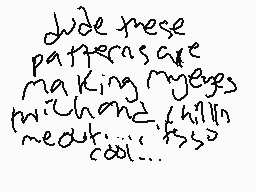 dude these
patterns are
making my eyes
twich and chillin
me out.... its so
cool...